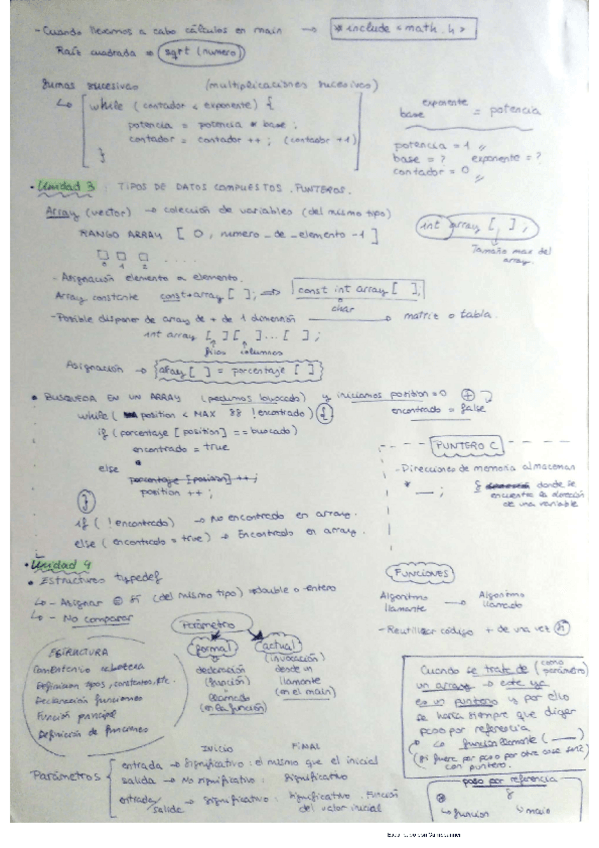 - Cuando llevemos a cabo cálculos en main → # include <math.h>
Raíz cuadrada ⇒ sqrt (numero)
Sumas sucesivas (multiplicaciones sucesivas)
while (contador < exponente) {
potencia = potencia * base ;
contador = contador ++ ; (contador +1)
}
base exponente = potencia
potencia = 1 //
base = ? exponente = ?
contador = 0 //
• Unidad 3 : TIPOS DE DATOS COMPUESTOS. PUNTEROS.
Array (vector) → colección de variables (del mismo tipo)
RANGO ARRAY [ 0, numero_de_elemento -1 ]
int array [ ] ;
Tamaño max del array.
0 1 2 ....
- Asignación elemento a elemento.
Array constante const array [ ] ; ⇒ const int array [ ] ;
char
- Posible disponer de array de + de 1 dimensión → matriz o tabla.
int array [ ] [ ] ... [ ] ;
filas columnas
Asignación → array [ ] = porcentaje [ ]
• BUSQUEDA EN UN ARRAY (pedimos buscado) y iniciamos position = 0
encontrado = false
while ( position < MAX && !encontrado) {
if (porcentaje [position] == buscado)
encontrado = true
else
porcentaje [position] ++ ;
position ++ ;
}
if ( ! encontrado) → No encontrado en array.
else ( encontrado = true) → Encontrado en array.
PUNTERO C
- Direcciones de memoria almacenan
* __ ; donde se
encuentra la dirección
de una variable
• Unidad 4
• Estructuras typedef
↳ - Asignar Sí (del mismo tipo) double o entero
↳ - No comparar
FUNCIONES
Algoritmo llamante → Algoritmo llamado
- Reutilizar código + de una vez
Parámetro
formal
declaración
(función)
llamado
(en la función)
actual
(invocación)
desde un
llamante
(en el main)
ESTRUCTURA
Comentario cabecera
Definicion tipos, constantes, etc.
Declaración funciones
Función principal
Definición de funciones
Cuando se trate de (como parámetro)
un array → este ya
es un puntero y por ello
se hará siempre que diga
paso por referencia
función llamante ( ___ )
con puntero.
INICIO FINAL
Parámetros
entrada → significativo : el mismo que el inicial
salida → No significativo : Significativo
entrada/salida → Significativo : Significativo. Función
del valor inicial
paso por referencia
↳ funcion ↳ main